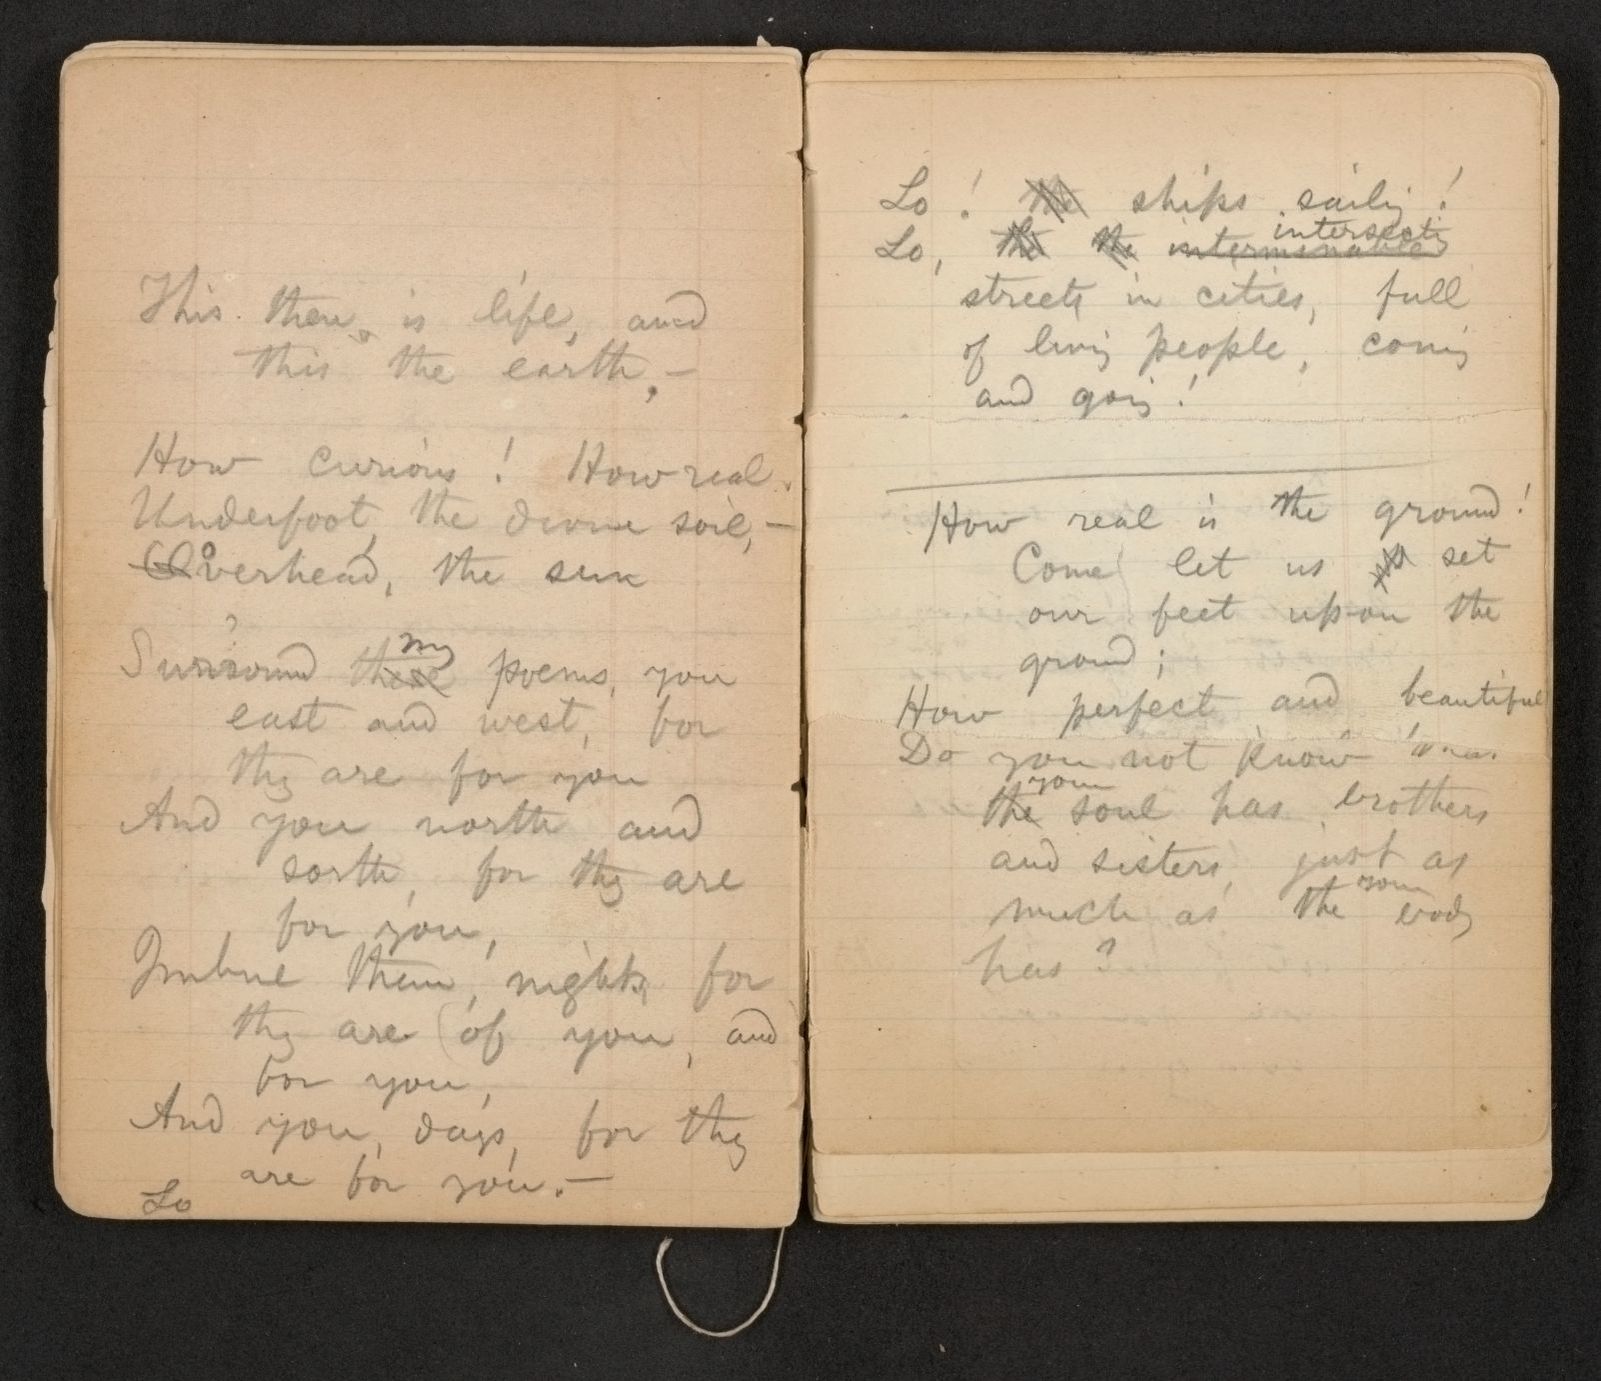 This then, is life, and
this the earth,—
How curious! How real.
Underfoot, the divine soil,—
Overhead, the sun
?
my
Surround these poems, you
east and west, for
they are for you
And you north and
south, for they are
for you,
Imbue them, nights, for
they are (of you, and
for you,
And you, days, for they
are for you.—
Lo
Lo! the ships sailing!
intersecting
Lo, the the interminable
streets in cities, full
of living people, coming
and going!
How real is the ground!
Come let us set
our feet upon the
ground;
How perfect and beautiful
Do you not know
your
the soul has brothers
and sisters, just as
your
much as the body
has?